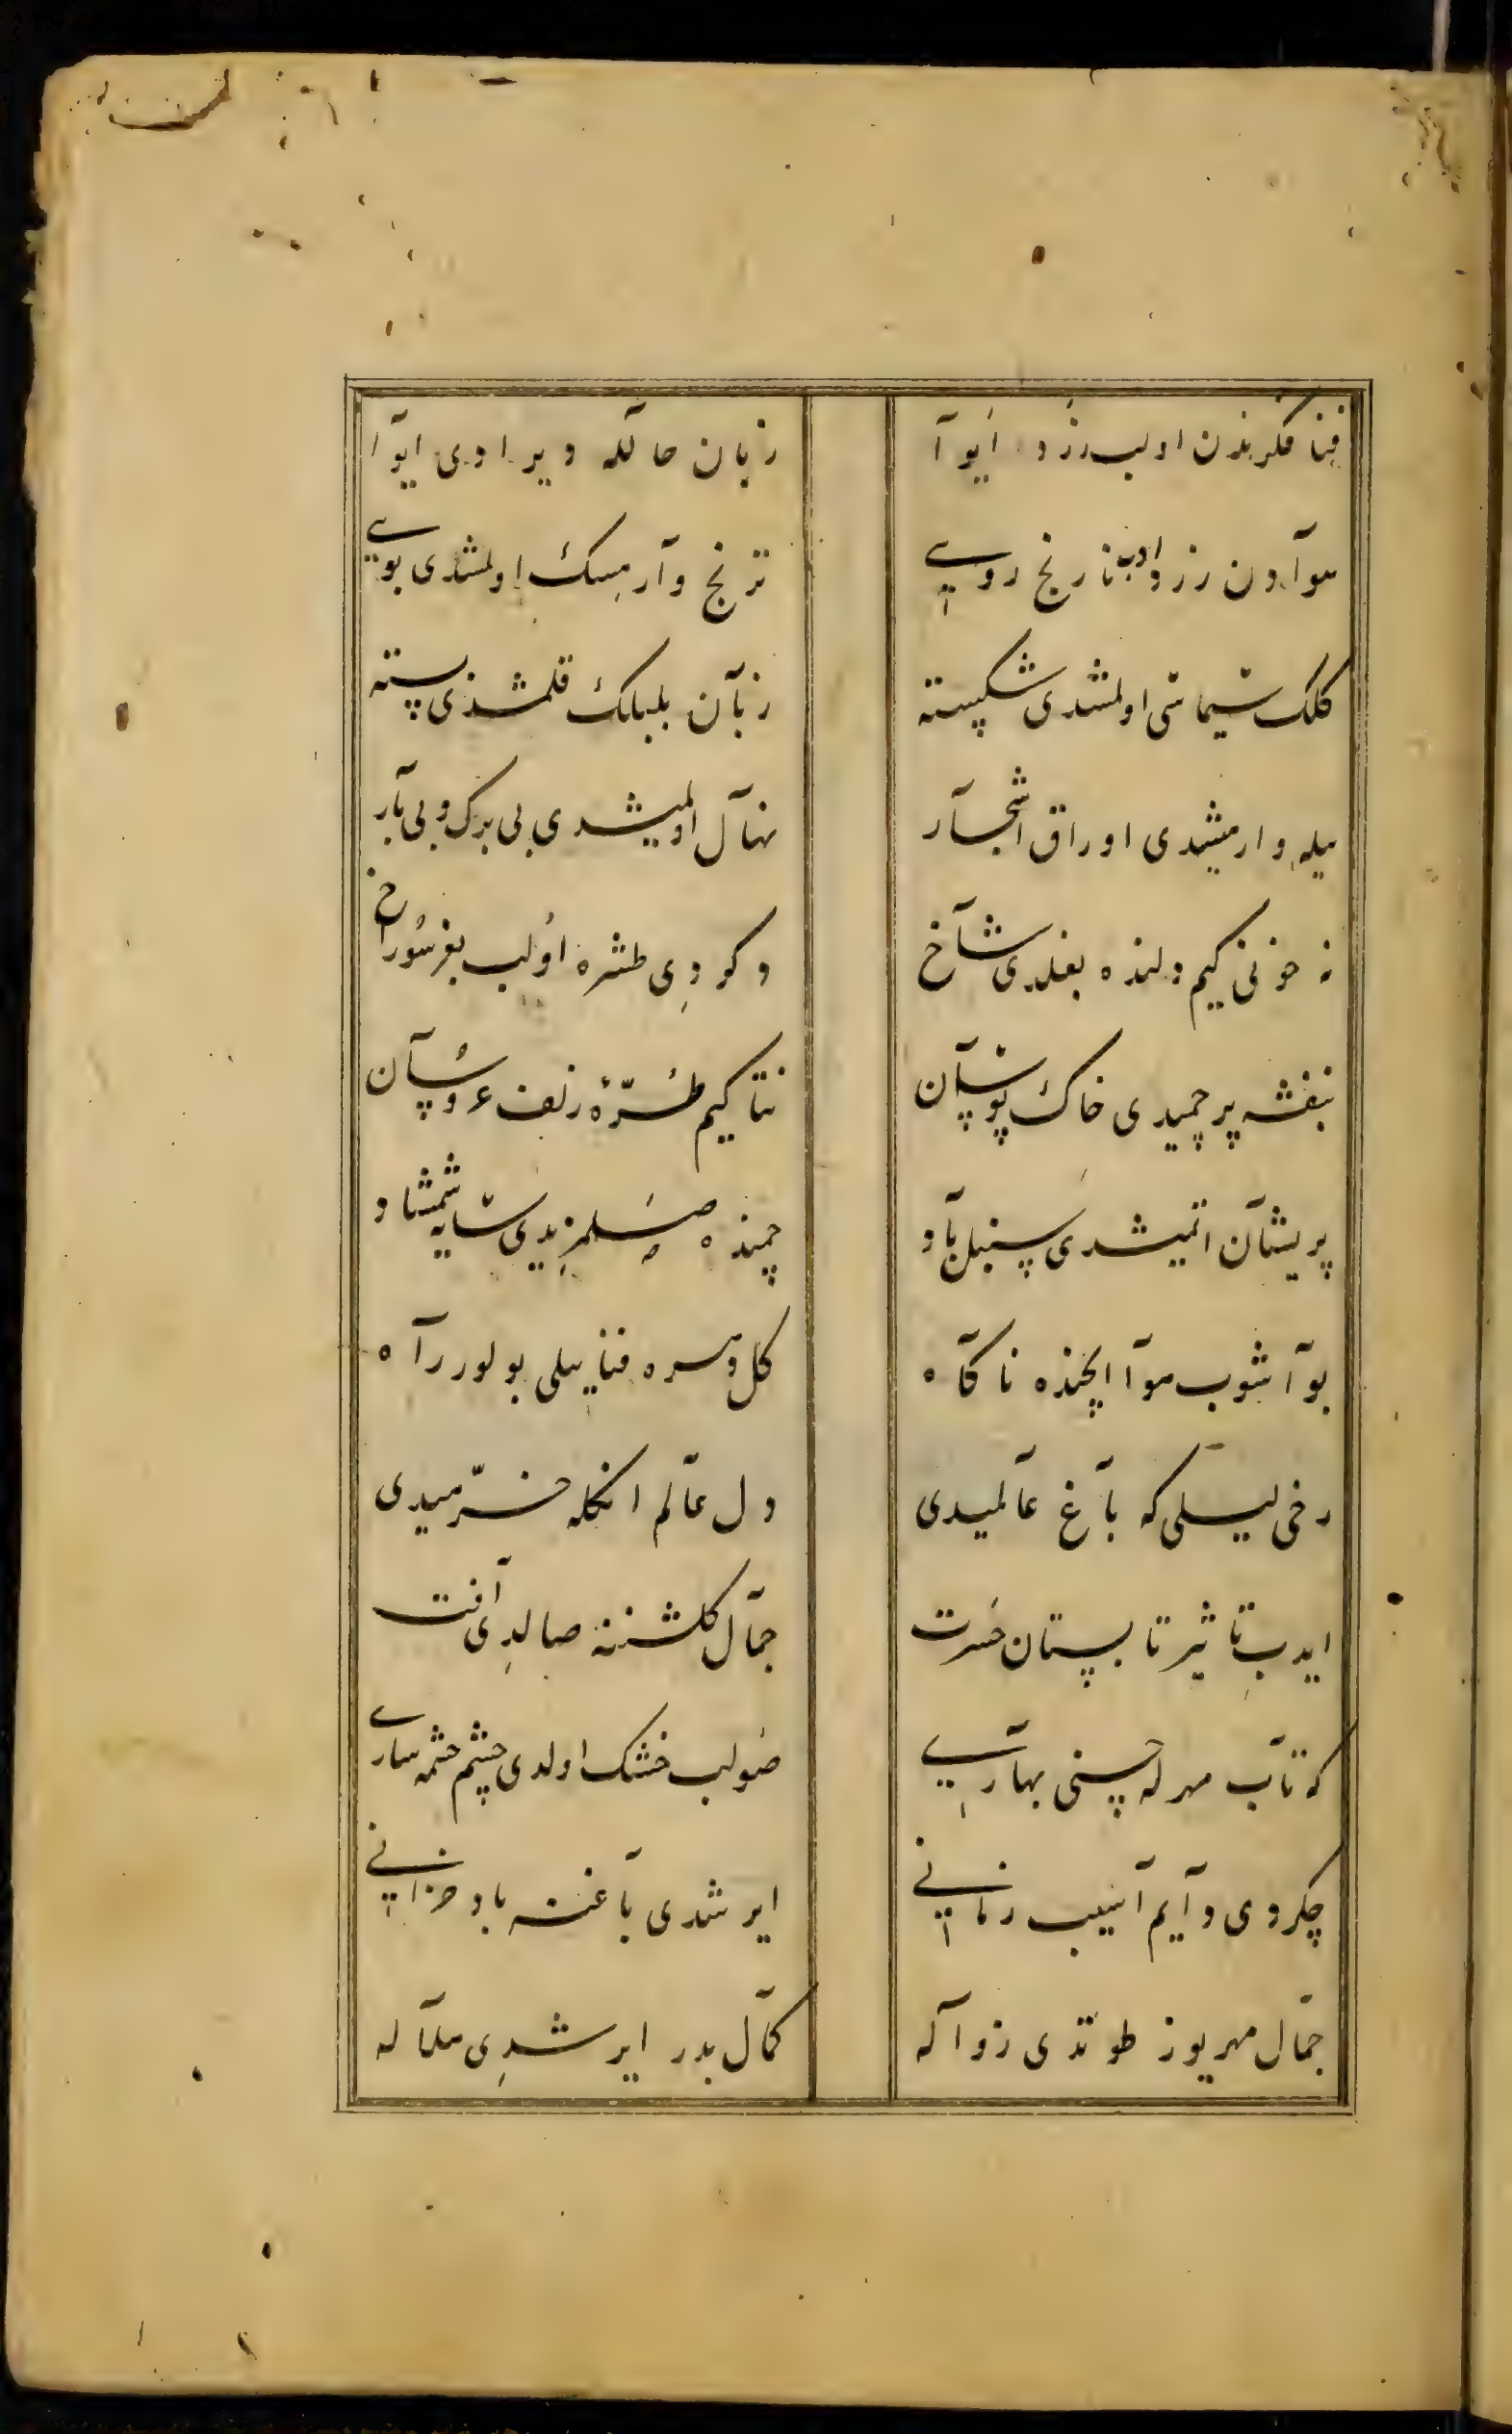 فنا فكرندن اولب زرد ايوا
زبان حالله ويرردى ايوا
هوادن زرد اولب نارنج رويى
ترنج وار مسك اولمشدى بويى
كلك سيماسى اولمشدى شكسته
زبان بلبلك قلمشدى بسته
يله وارمشدى اوراق اشجار
نهال اولمشدى بى برك و بى بار
نه خونى كيم دلنده بغلدى شاخ
دكردى طشره اولب بغر سوراخ
بنفشه پرچميدى خاك پوشان
نتا كيم طرّۀ زلف عروسان
پريشان اتمشدى سنبل باد
چمنده صلمزيدى سايه شمشاد
بو آشوب هوا ايچنده ناكاه
كل و سروه فنا يلى بولور راه
رخى ليلى كه باغ عالميدى
دل عالم انكله خرّميدى
ايدب تاثير تابستان حسرت
جمال كلشننه صالدى آفت
كه تاب مهرله حسنى بهارى
صولب خشك اولدى چشم چشمه سارى
چكردى دايم آسيب زمانى
ايرشدى باغنه باد خزانى
جمال مهر يوز طوتدى زواله
كمال بدر ايرشدى هلاله